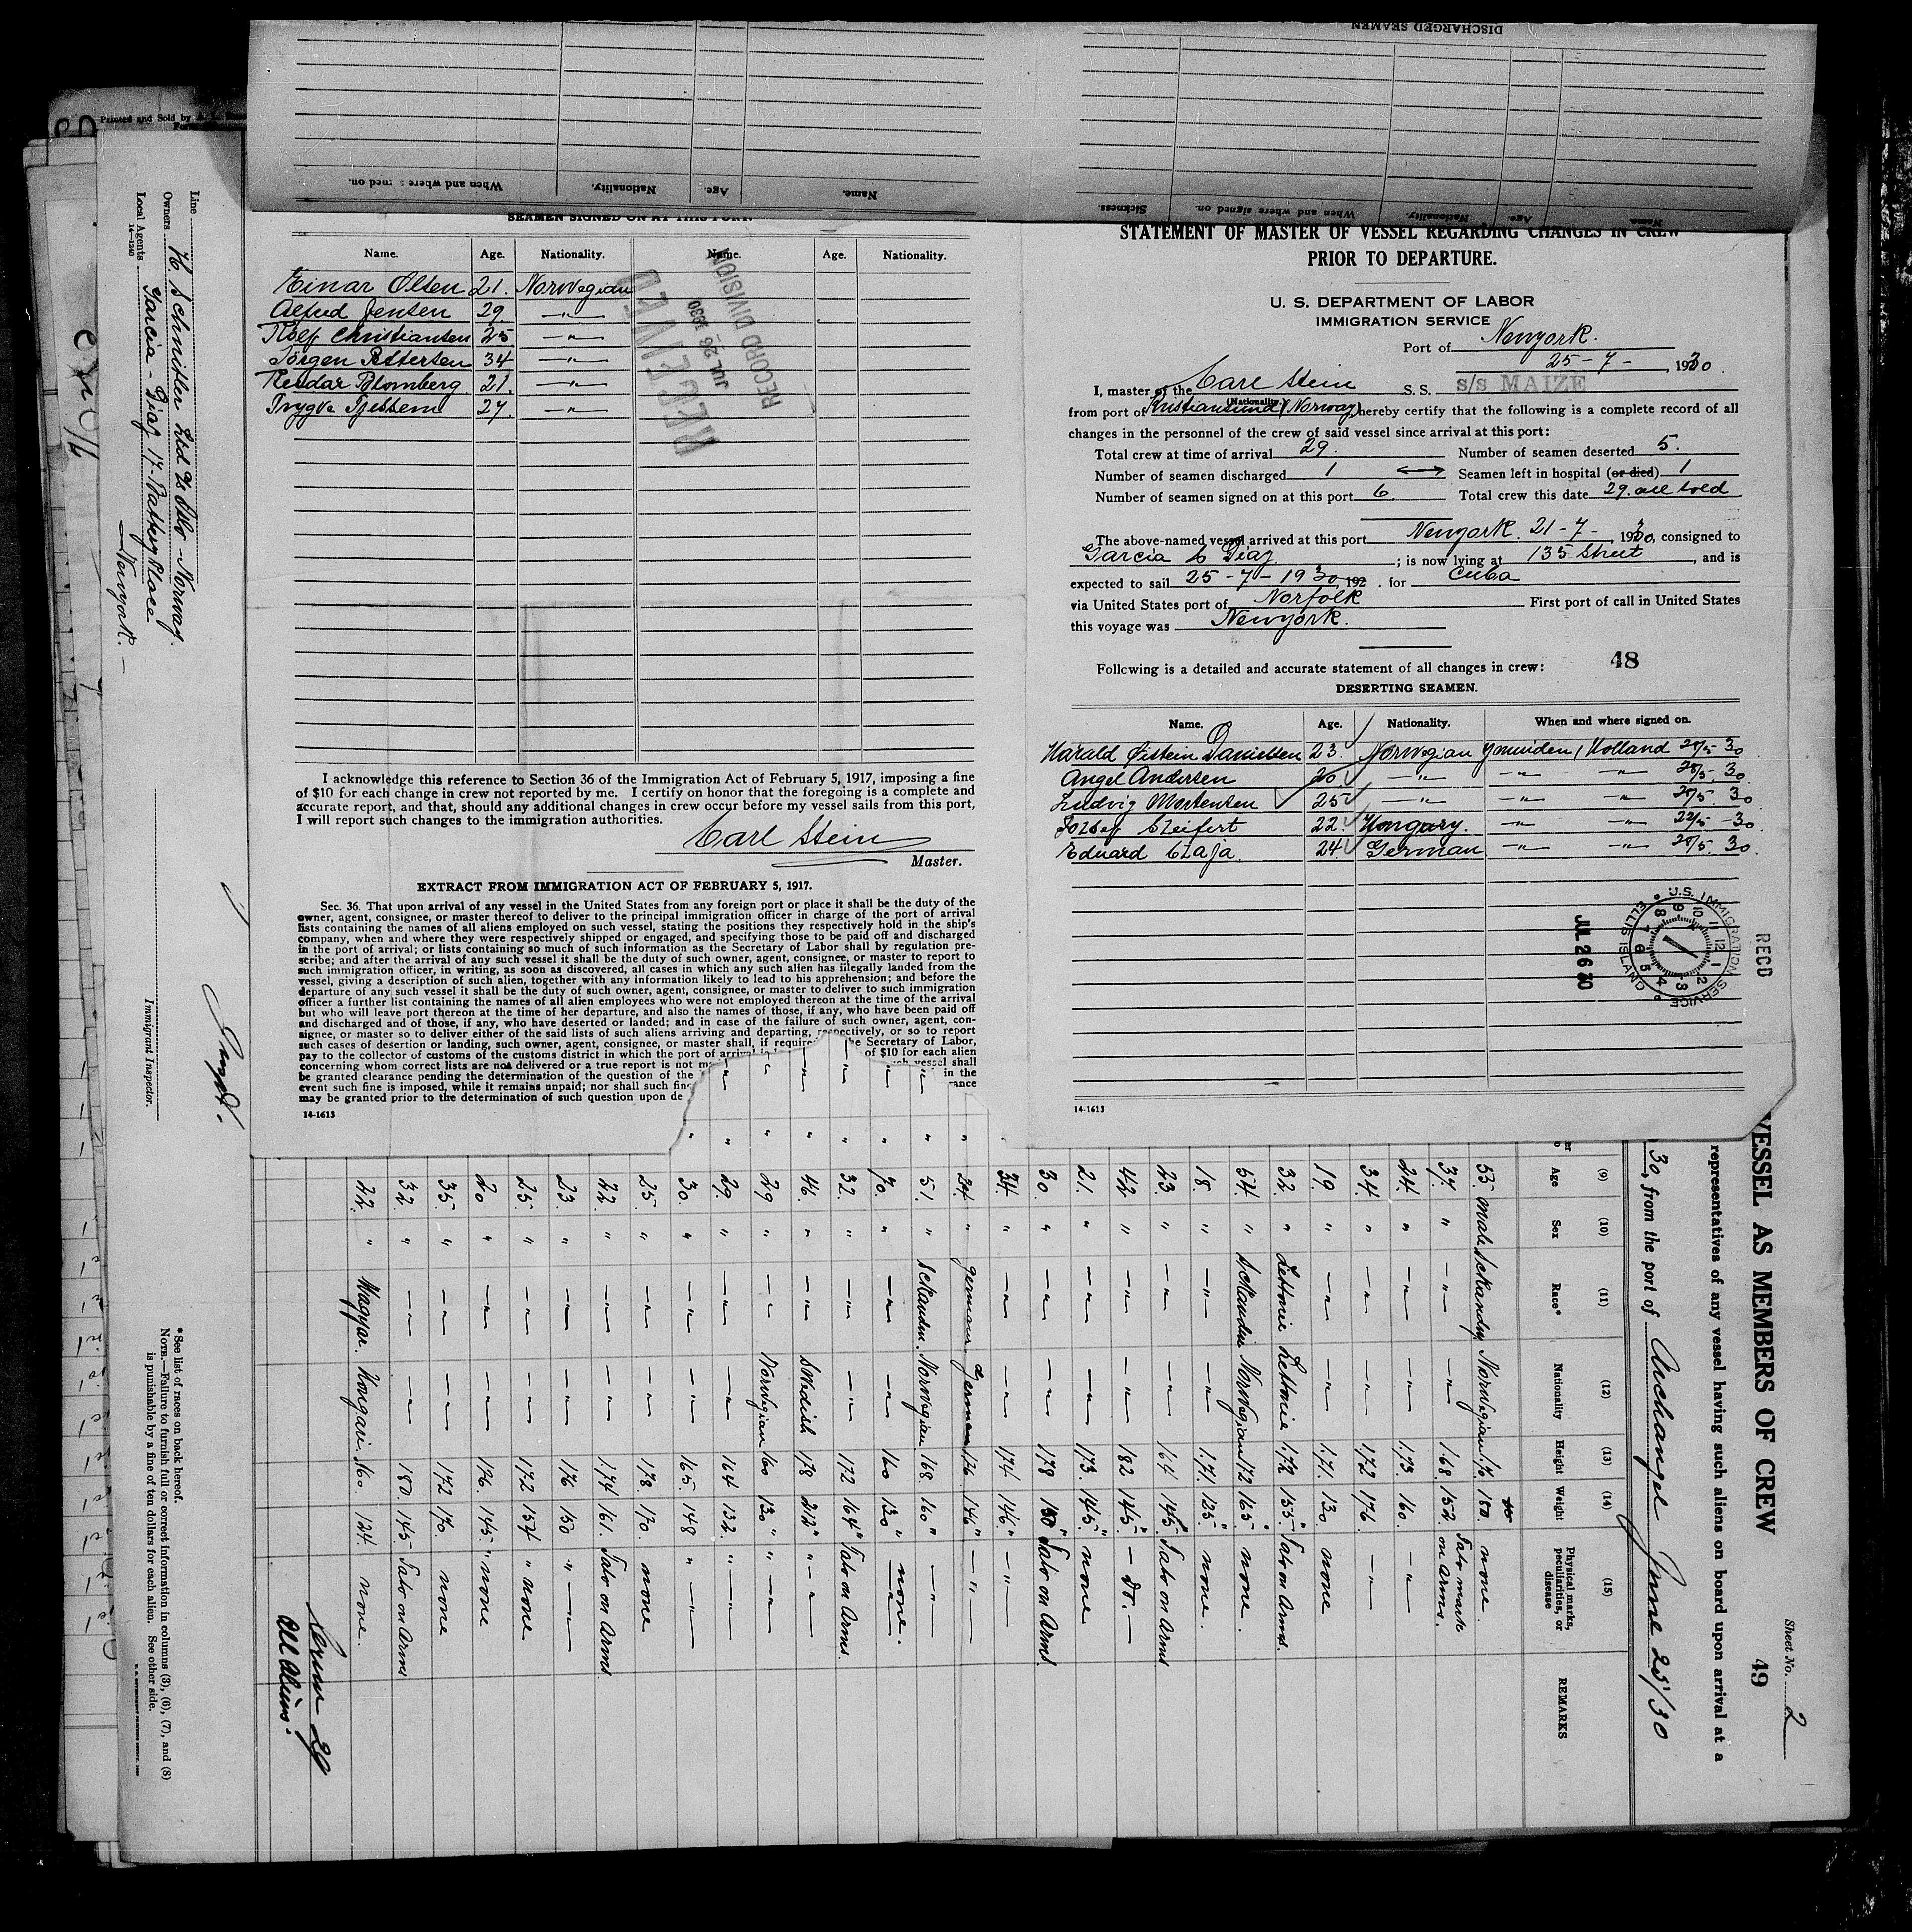 DISCHARGED SEAMEN
Name.
Age.
Nationality.
When and where signed on.
Sickness.
Name.
Age.
Nationality.
When and where signed on.
Printed and Sold by
SEAMEN SIGNED ON AT THIS PORT.
Name. Age. Nationality. Name. Age. Nationality.
Einar Olsen 21. Norwegian
Alfred Jensen 29. —"—
Rolf Christiansen 25 —"—
Jörgen Pettersen 34 —"—
Reidar Blomberg. 21. —"—
Trygve 27. —"—
RECEIVED
JUL 26 1930
RECORD DIVISION
I acknowledge this reference to Section 36 of the Immigration Act of February 5, 1917, imposing a fine
of $10 for each change in crew not reported by me. I certify on honor that the foregoing is a complete and
accurate report, and that, should any additional changes in crew occur before my vessel sails from this port,
I will report such changes to the immigration authorities.
Carl Stein
Master.
EXTRACT FROM IMMIGRATION ACT OF FEBRUARY 5, 1917.
Sec. 36. That upon arrival of any vessel in the United States from any foreign port or place it shall be the duty of the
owner, agent, consignee, or master thereof to deliver to the principal immigration officer in charge of the port of arrival
lists containing the names of all aliens employed on such vessel, stating the positions they respectively hold in the ship's
company, when and where they were respectively shipped or engaged, and specifying those to be paid off and discharged
in the port of arrival; or lists containing so much of such information as the Secretary of Labor shall by regulation pre-
scribe; and after the arrival of any such vessel it shall be the duty of such owner, agent, consignee, or master to report to
such immigration officer, in writing, as soon as discovered, all cases in which any such alien has illegally landed from the
vessel, giving a description of such alien, together with any information likely to lead to his apprehension; and before the
departure of any such vessel it shall be the duty of such owner, agent, consignee, or master to deliver to such immigration
officer a further list containing the names of all alien employees who were not employed thereon at the time of the arrival
but who will leave port thereon at the time of her departure, and also the names of those, if any, who have been paid off
and discharged and of those, if any, who have deserted or landed; and in case of the failure of such owner, agent, con-
signee, or master so to deliver either of the said lists of such aliens arriving and departing, respectively, or so to report
such cases of desertion or landing, such owner, agent, consignee, or master shall, if require the Secretary of Labor,
pay to the collector of customs of the customs district in which the port of arrival of $10 for each alien
concerning whom correct lists are not delivered or a true report is not m such vessel shall
be granted clearance pending the determination of the question of the in the
event such fine is imposed, while it remains unpaid; nor shall such fine rance
may be granted prior to the determination of such question upon de
14-1613
STATEMENT OF MASTER OF VESSEL REGARDING CHANGES IN CREW
PRIOR TO DEPARTURE.
U. S. DEPARTMENT OF LABOR
IMMIGRATION SERVICE
Port of Newyork.
25-7-, 1930.
I, master of the Carl Stein S. S. s/s MAIZE
(Nationality.)
from port of Kristiansund (Norway) hereby certify that the following is a complete record of all
changes in the personnel of the crew of said vessel since arrival at this port:
Total crew at time of arrival 29. Number of seamen deserted 5.
Number of seamen discharged 1 Seamen left in hospital (or died) 1
Number of seamen signed on at this port 6. Total crew this date 29. all told
The above-named vessel arrived at this port Newyork. 21-7-, 1930, consigned to
Garcia & Diaz; is now lying at 135 Street, and is
expected to sail 25-7-1930 192 . for Cuba
via United States port of Norfolk First port of call in United States
this voyage was Newyork.
Following is a detailed and accurate statement of all changes in crew: 48
DESERTING SEAMEN.
Name. Age. Nationality. When and where signed on.
Harald Øistein Danielsen 23. Norwegian Ymuiden, Holland 28/5- 30
Angel Andersen 20. —"— —"— —"— 28/5. 30
Ludvig Mortensen 25 —"— —"— —"— 28/5. 30
Jozsef Szeifert 22. Hongary. —"— —"— 22/5 -30
Eduard Czaja. 24 German —"— —"— 28/5. 30
REC'D
U.S. IMMIGRATION SERVICE
ELLIS ISLAND
JUL 26 30
14-1613
Sheet No. 2
49
VESSEL AS MEMBERS OF CREW
representatives of any vessel having such aliens on board upon arrival at a
30, from the port of Archangel June 25'/30
(9) (10) (11) (12) (13) (14) (15)
Age Sex Race* Nationality Height Weight Physical marks, peculiarities, or disease REMARKS
55 male Skandin Norwegian 1.70 180. none.
37 " —"— —"— 168. 152. Tato mark on arms.
24. " —"— —"— 1.73. 160. —"—
34. " —"— —"— 172 176. —"—
19. " —"— —"— 1.71. 130. none
32. " Lettonie Lettonie 1.72 155- Tato on Arms.
54. " Skandin Norwegian 172 165. none.
18. " —"— —"— 1.71. 125. none.
23. " —"— —"— 164 145. Tato on Arms
42. " —"— —"— 182 145. —do.—
21. " —"— —"— 173. 145. none
30. " —"— —"— 178 150 Tato on Arms
34. " —"— —"— 174 146. —"—
24. " german German 176 146 —"—
51. " Skandin. Norwegian 168. 160 —"—
70. " —"— —"— 160 130 none.
32. " —"— —"— 172 164 Tato on Arms.
46. " —"— Swedish 178 212 —"—
29. " —"— Norwegian 160 130 —"—
29. " —"— —"— 164 132. —"—
30. " —"— —"— 165. 148 —"—
25. " —"— —"— 178. 170. none
22. " —"— —"— 1.74 161. Tato on Arms
23. " —"— —"— 176 150 —"—
25. " —"— —"— 172 154 none
20. " —"— —"— 176. 145. none
35. " —"— —"— 172 170. none
32. " —"— —"— 180. 145. Tato on Arms
22. " Magyar. Hongari. 160. 124. none.
29
All Aliens.
*See list of races on back hereof.
NOTE.—Failure to furnish full or correct information in columns (3), (6), (7), and (8)
is punishable by a fine of ten dollars for each alien. See other side.
Line
Owners H. Schnitler Ltd Oslo - Norway.
Local Agents Garcia - Diaz 17- Battery Place
14-1240
— Newyork. —
Immigrant Inspector.